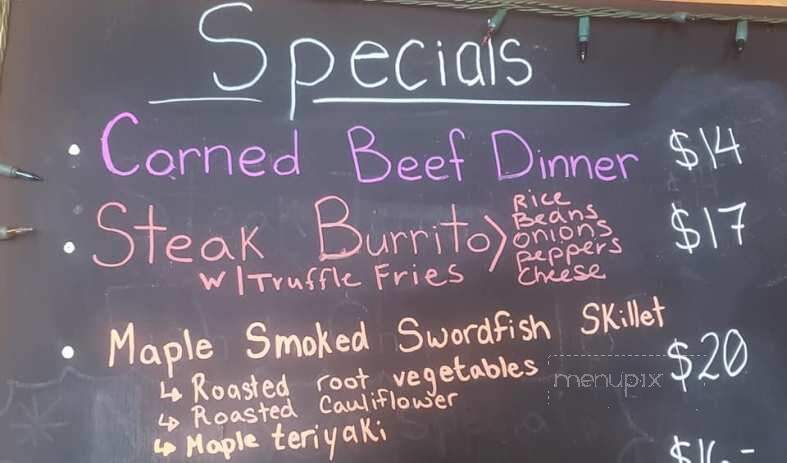 Specials
• Corned Beef Dinner $14
• Steak Burrito > Rice Beans onions peppers cheese $17
w/Truffle Fries
• Maple Smoked Swordfish Skillet $20
↳ Roasted root vegetables
↳ Roasted Cauliflower
↳ Maple teriyaki
menupix